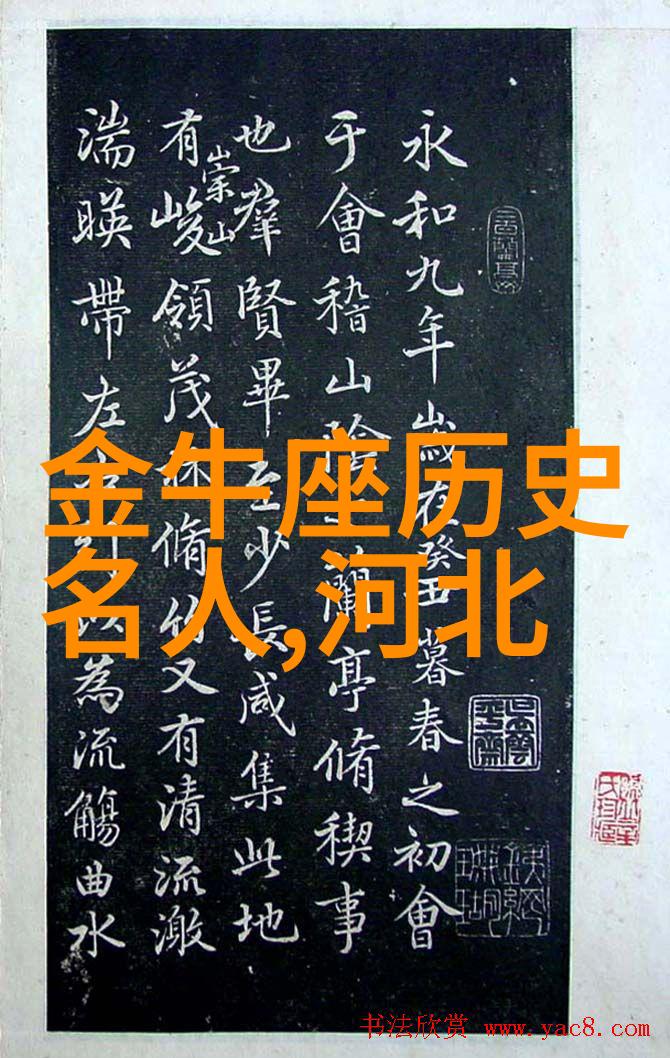 永和九年歲在癸丑暮春之初會
于會稽山陰蘭亭脩稧事
也羣賢畢至少長咸集此地
有崇山峻領茂林脩竹又有清流激
湍暎帶左以為流觴曲水
金牛座历史
名人,河北
书法欣赏 www.yac8.com